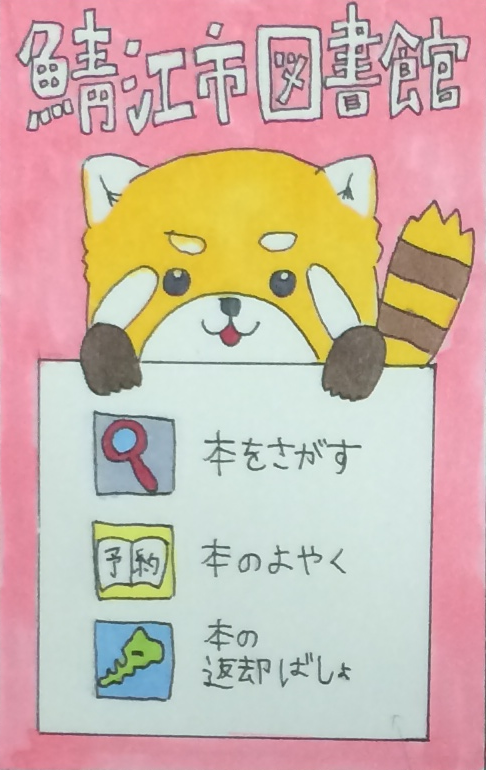 鯖江市図書館
本をさがす
予約
本のよやく
本の
返却ばしょ